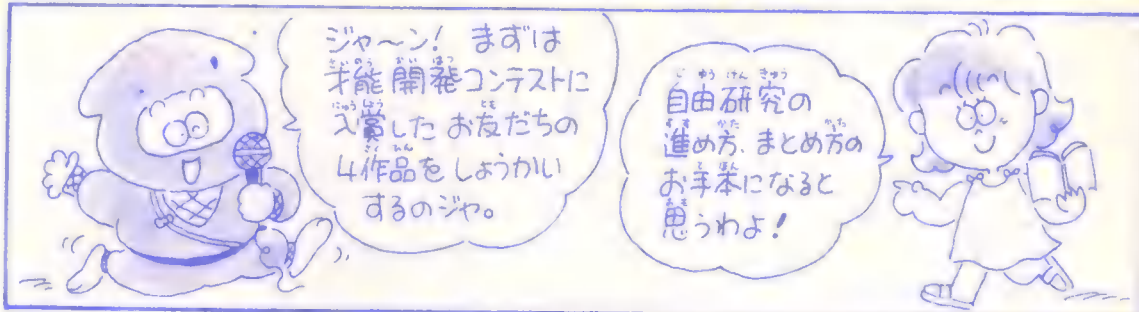 ジャ〜ン! まずは
才能開発コンテストに
入賞した お友だちの
4作品を しょうかい
するのジャ。
自由研究の
進め方、まとめ方の
お手本になると
思うわよ!